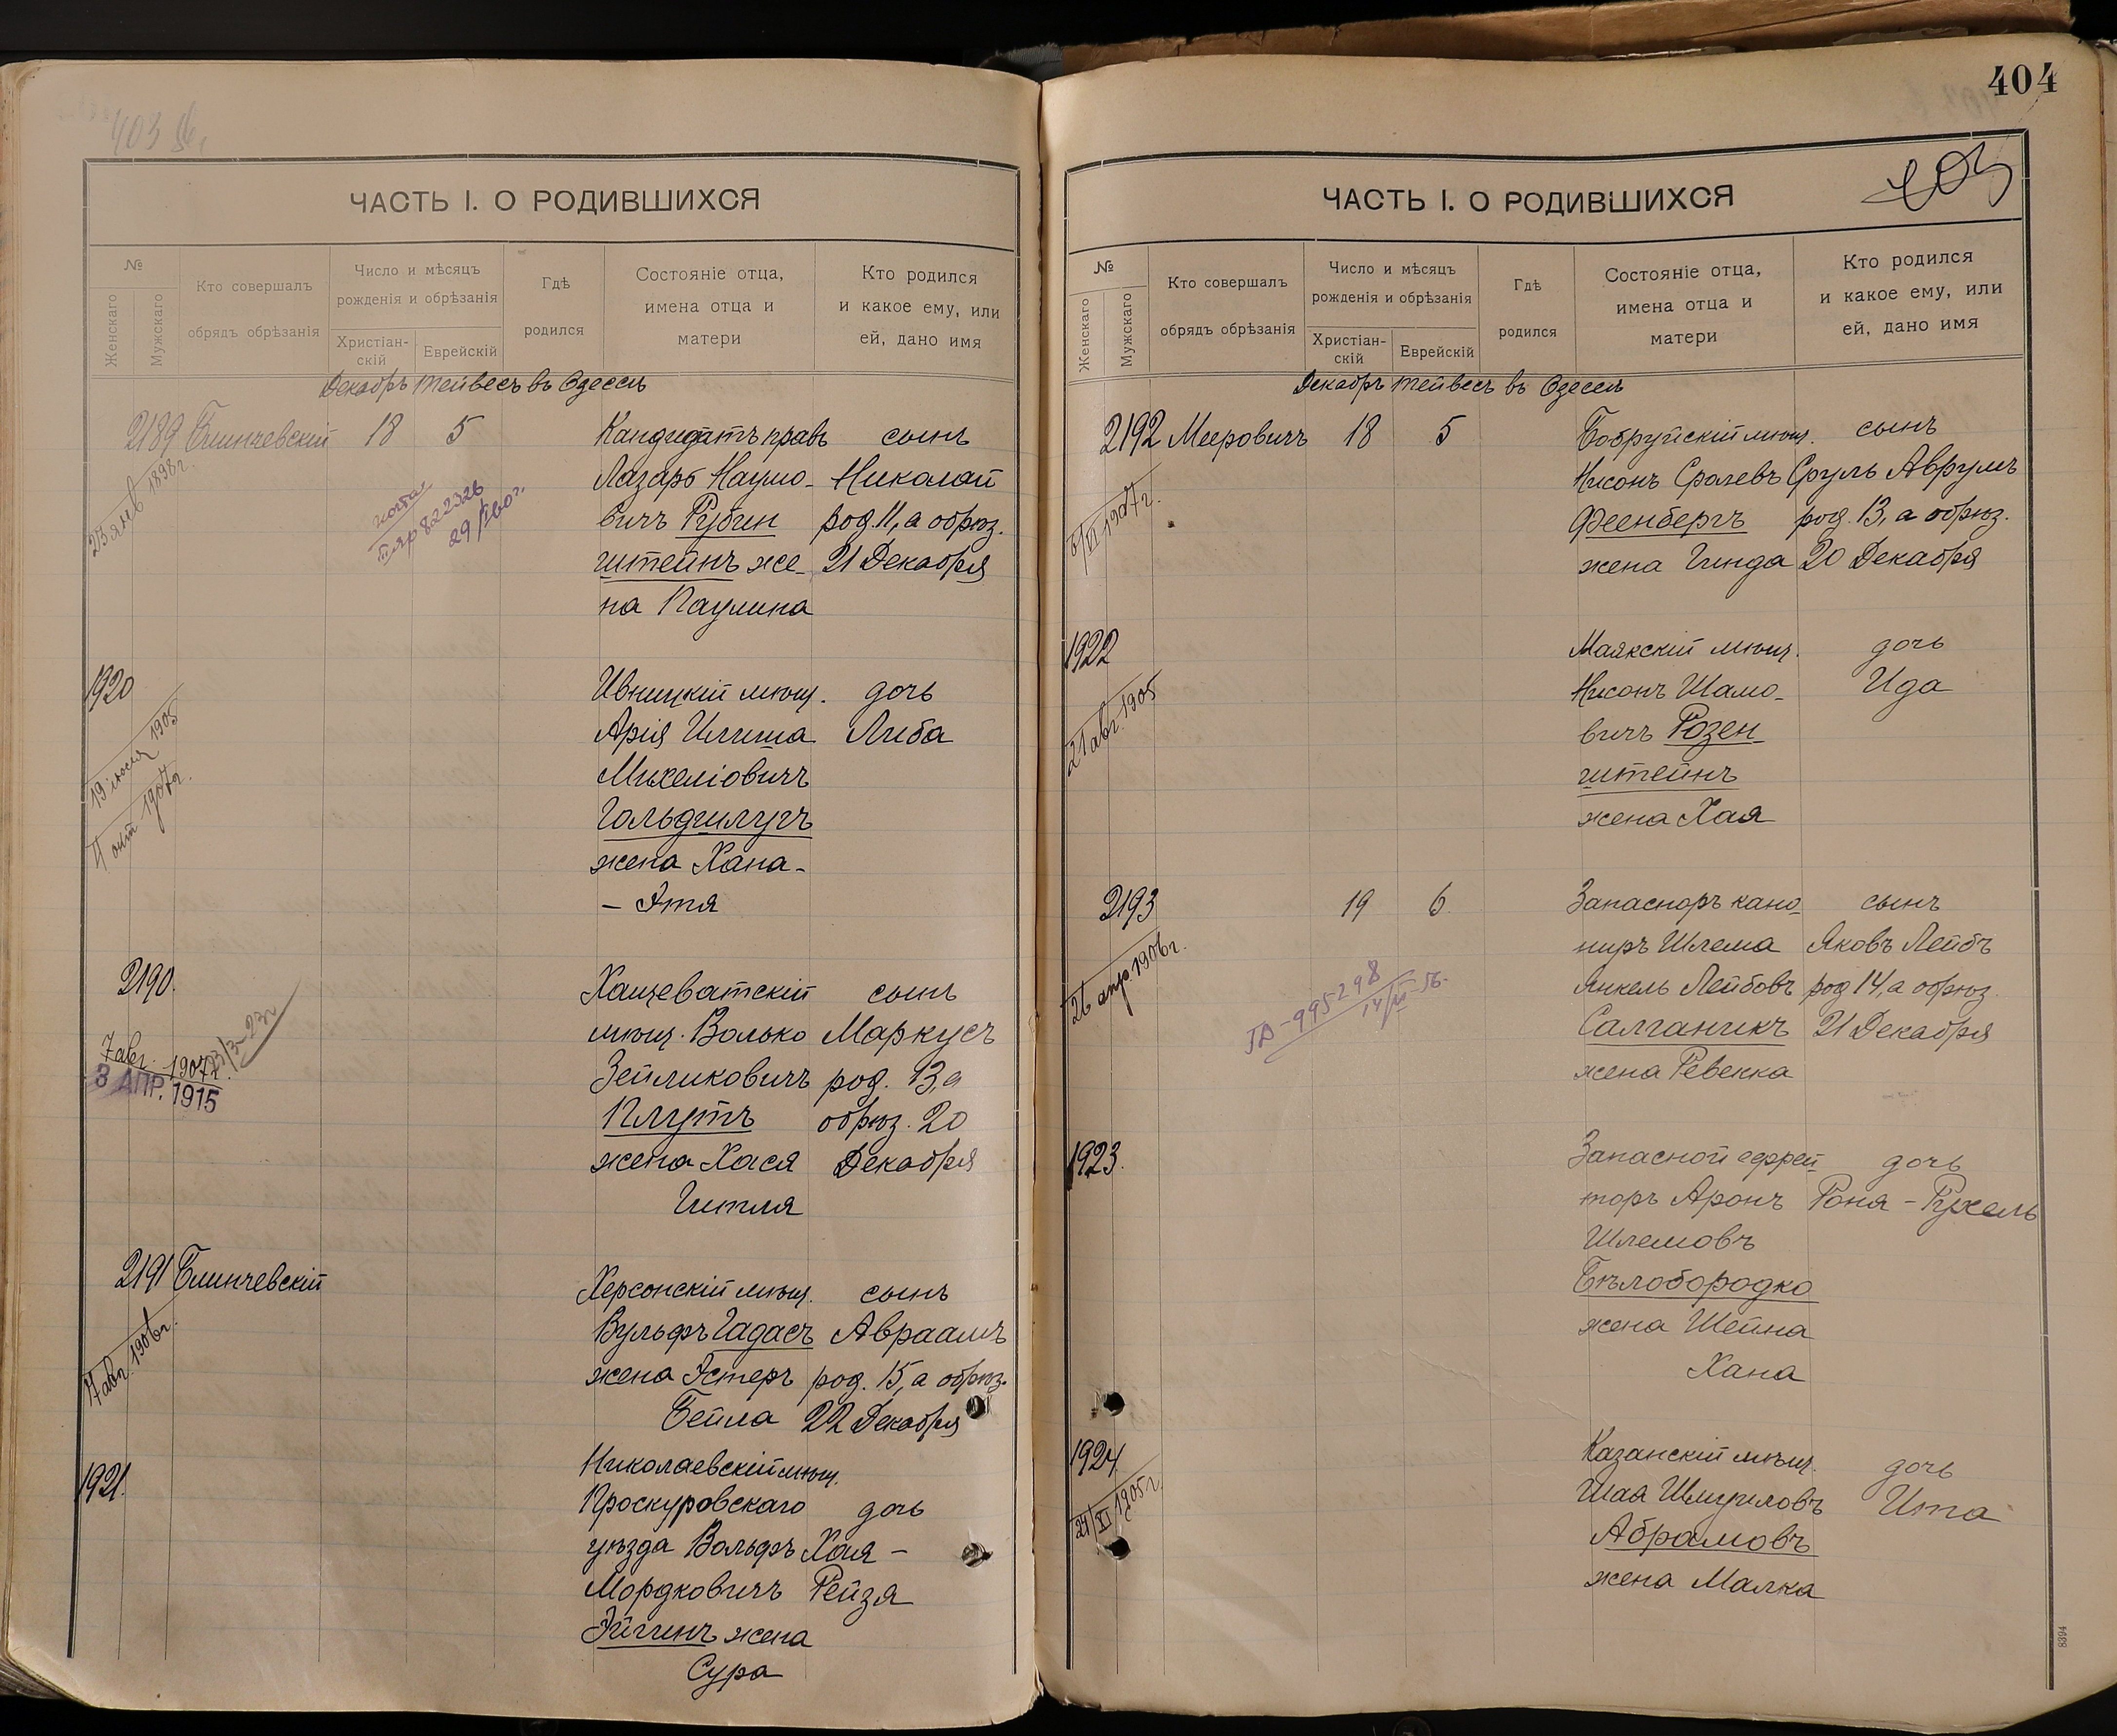 403 об.
ЧАСТЬ I. О РОДИВШИХСЯ
№
Женскаго
Мужскаго
Кто совершалъ
обрядъ обрѣзанія
Число и мѣсяцъ
рожденія и обрѣзанія
Христіан-
скій
Еврейскій
Гдѣ
родился
Состояніе отца,
имена отца и
матери
Кто родился
и какое ему, или
ей, дано имя
Декабрь Тейвесъ въ Одессѣ
2189 Блинчевскій 18 5 Кандидатъ правъ сынъ
Лазарь Наумо- Николай
вичъ Рубин род. 11, а обрѣз.
штейнъ же- 21 Декабря
на Паулина
23 янв 1898г.
822326
1920 Ивницкій мѣщ. дочь
Арія Илиша Либа
Михеліовичъ
Гольдшлугъ
жена Хана-
- Этя
19 іюля 1905
11 окт 1907г.
2190. Хащеватскій сынъ
мѣщ. Волько Маркусъ
Зейликовичъ род. 13, а
Плутъ обрѣз. 20
жена Хася Декабря
Гитля
7 авг. 1907г.
3 АПР. 1915
2191 Блинчевскій Херсонскій мѣщ. сынъ
Вульфъ Гадасъ Авраамъ
жена Эстеръ род. 15, а обрѣз.
Бейла 22 Декабря
1906г.
1921. Николаевскій мѣщ.
Проскуровскаго дочь
уѣзда Вольфъ Хая-
Мордковичъ Рейзя
Эйгинъ жена
Сура
404
403
ЧАСТЬ I. О РОДИВШИХСЯ
№
Женскаго
Мужскаго
Кто совершалъ
обрядъ обрѣзанія
Число и мѣсяцъ
рожденія и обрѣзанія
Христіан-
скій
Еврейскій
Гдѣ
родился
Состояніе отца,
имена отца и
матери
Кто родился
и какое ему, или
ей, дано имя
Декабрь Тейвесъ въ Одессѣ
2192 Мееровичъ 18 5 Бобруйскій мѣщ. сынъ
Нисонъ Сролевъ Сруль Аврумъ
Феенбергъ род. 13, а обрѣз.
жена Гинда 20 Декабря
6/VI 1907г.
1922 Маякскій мѣщ. дочь
Нисонъ Шамо- Ида
вичъ Розен
штейнъ
жена Хая
21 авг. 1905
2193 19 6 Запасноръ кано- сынъ
ниръ Шлема Яковъ Лейбъ
Янкель Лейбовъ род 14, а обрѣз.
Салганикъ 21 Декабря
жена Ревекка
26 апр. 1906г.
995298
1923. Запасной ефрей дочь
торъ Аронъ Роня-Рухель
Шлемовъ
Бѣлобородко
жена Шейна
Хана
1924 Казанскій мѣщ. дочь
Шая Шмуиловъ Ита
Абрамовъ
жена Малка
21/XI 1905г.
8394